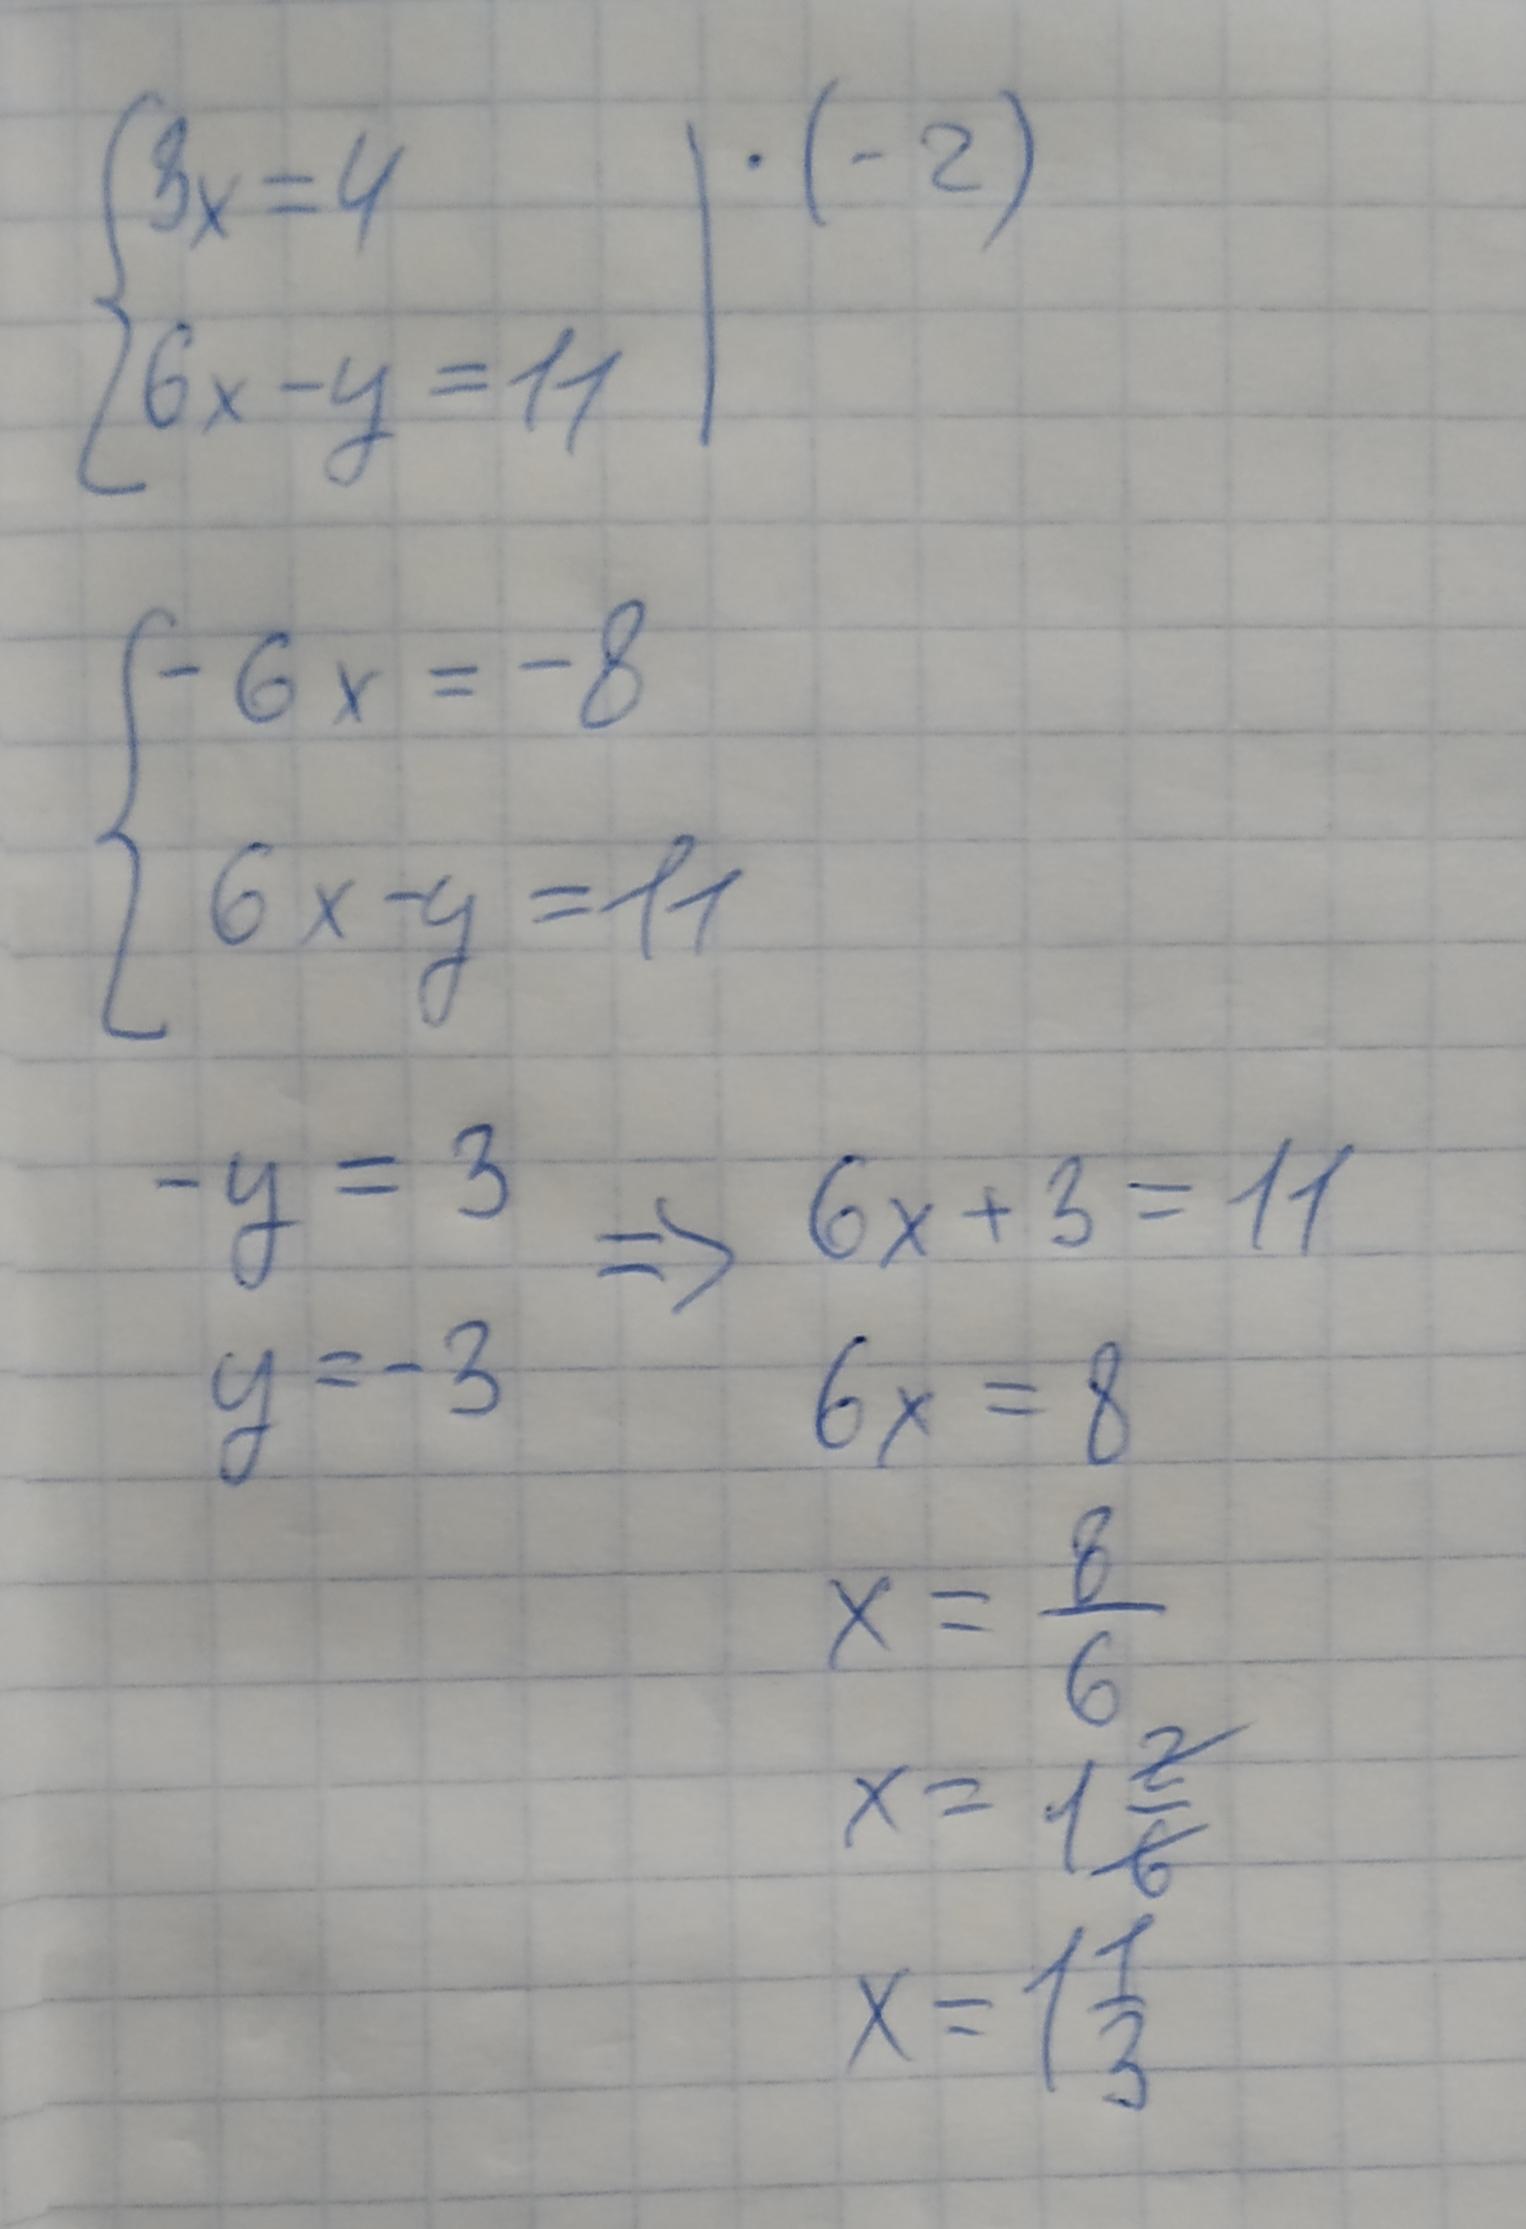 3x = 4 | · (-2)
6x - y = 11
-6x = -8
6x - y = 11
-y = 3 => 6x + 3 = 11
y = -3
6x = 8
x = 8/6
x = 1 2/6
x = 1 1/3